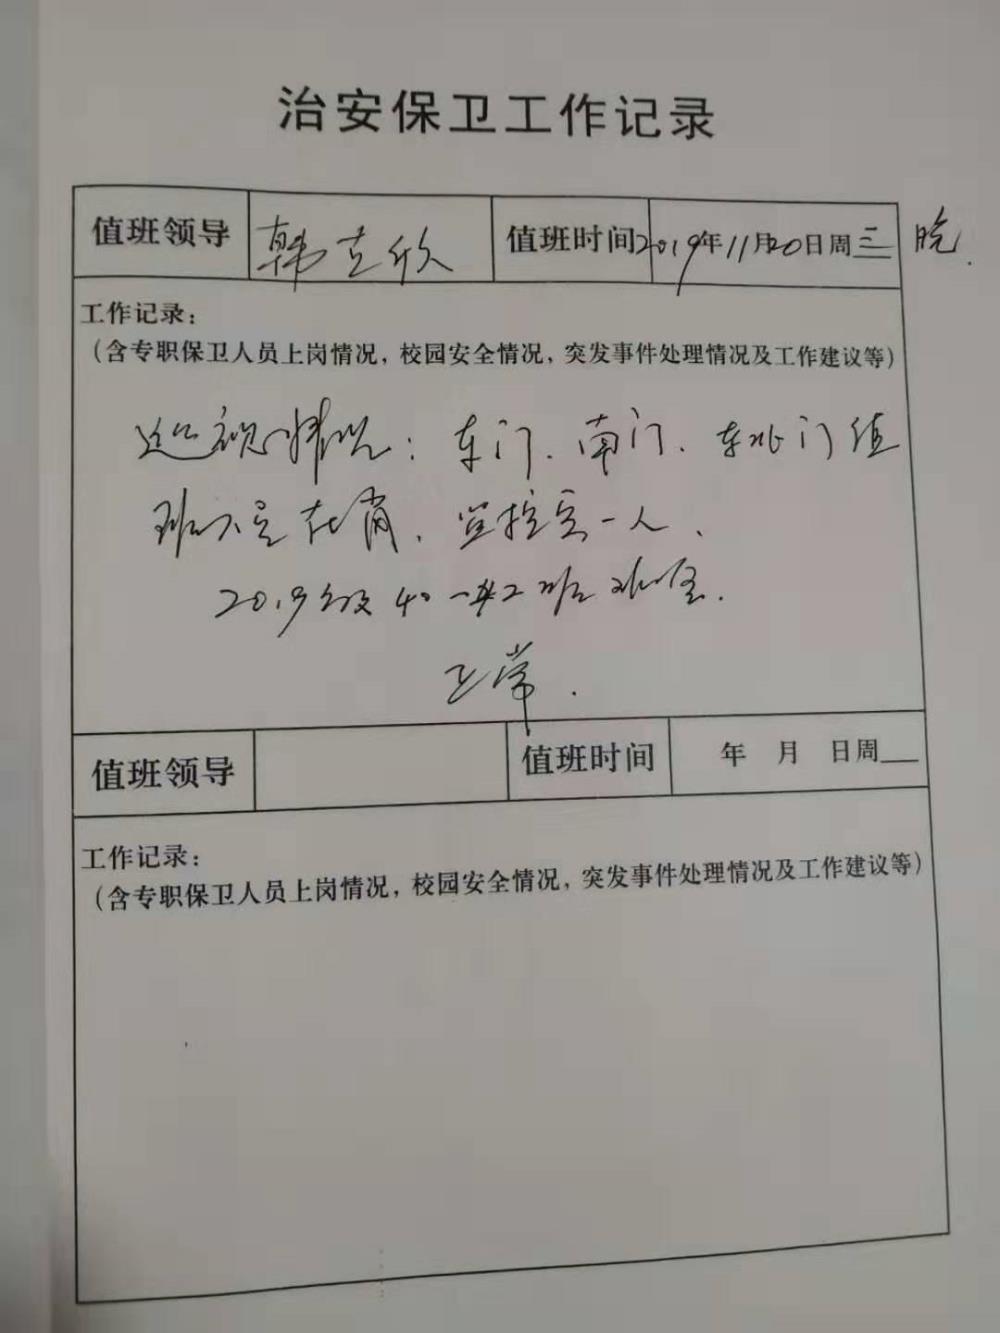 治安保卫工作记录
值班领导 韩立欣 值班时间 2019年11月20日周三 晚.
工作记录:
(含专职保卫人员上岗情况,校园安全情况,突发事件处理情况及工作建议等)
巡视情况:东门、南门、东北门值
班人员在岗,监控室一人.
2019级 班
正常.
值班领导 值班时间 年 月 日周
工作记录:
(含专职保卫人员上岗情况,校园安全情况,突发事件处理情况及工作建议等)